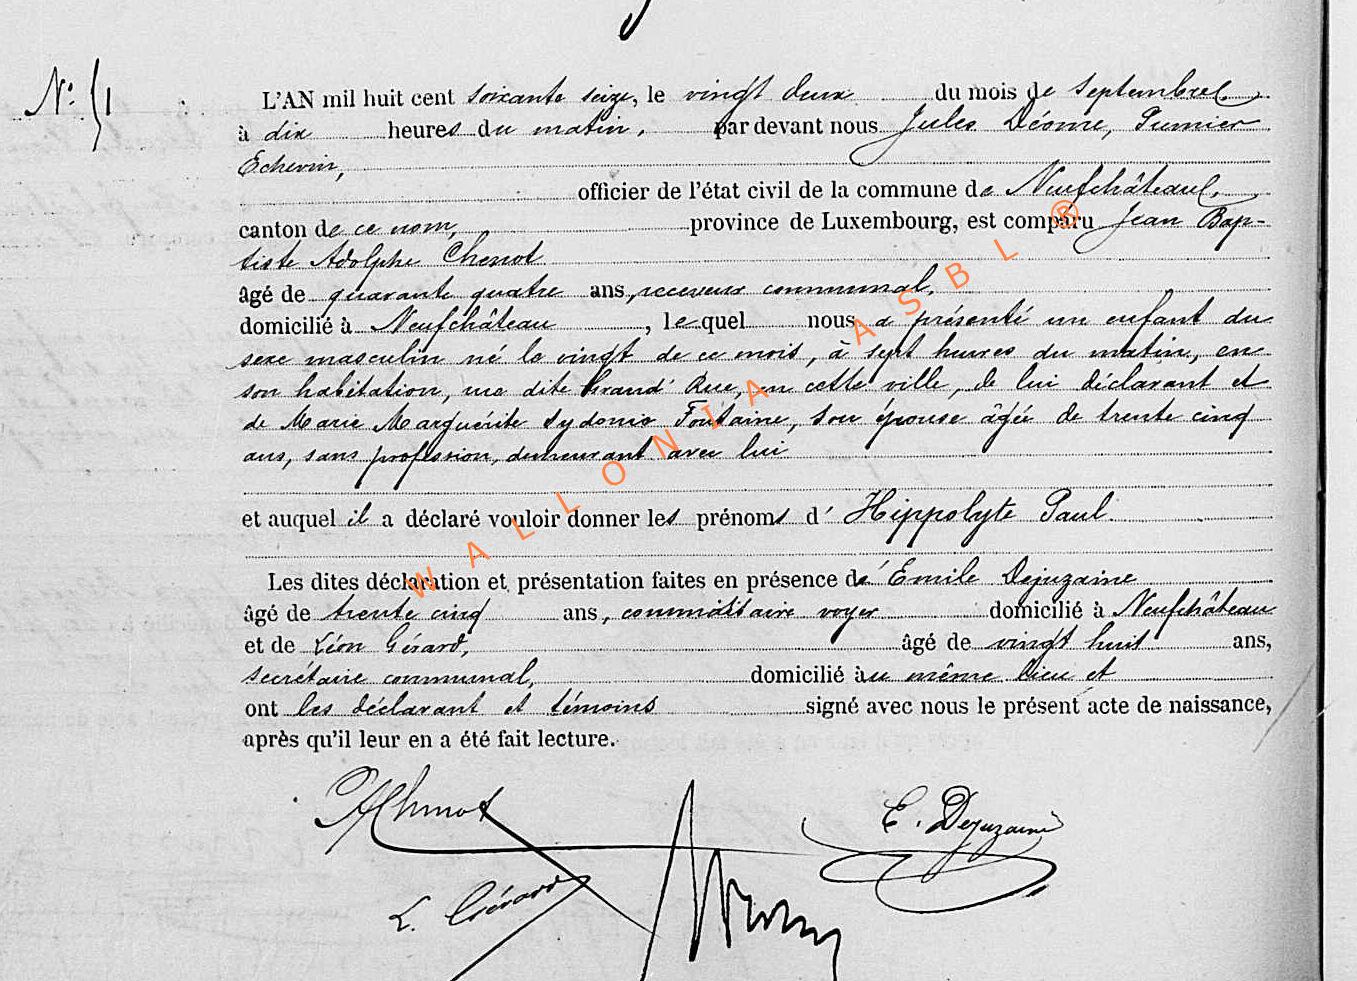 N° 51
L'AN mil huit cent soixante seize, le vingt deux du mois de Septembre
à dix heures du matin, par devant nous Jules Déome, Premier
Echevin,
officier de l'état civil de la commune de Neufchâteau,
canton de ce nom, province de Luxembourg, est comparu Jean Bap-
tiste Adolphe Chenot
âgé de quarante quatre ans, receveur communal,
domicilié à Neufchâteau, lequel nous a présenté un enfant du
sexe masculin né le vingt de ce mois, à sept heures du matin, en
son habitation, rue dite Grand' Rue, en cette ville, de lui déclarant et
de Marie Marguérite Sydonie Fontaine, son épouse âgée de trente cinq
ans, sans profession, demeurant avec lui
et auquel il a déclaré vouloir donner les prénoms d' Hippolyte Paul.
Les dites déclaration et présentation faites en présence de Emile Dejuzaine
âgé de trente cinq ans, commissaire voyer domicilié à Neufchâteau
et de Léon Gérard, âgé de vingt huit ans,
secrétaire communal, domicilié au même lieu et
ont les déclarant et témoins signé avec nous le présent acte de naissance,
après qu'il leur en a été fait lecture.
AChenot
E. Dejuzaine
L. Gérard
WALLONIA ASBL ®